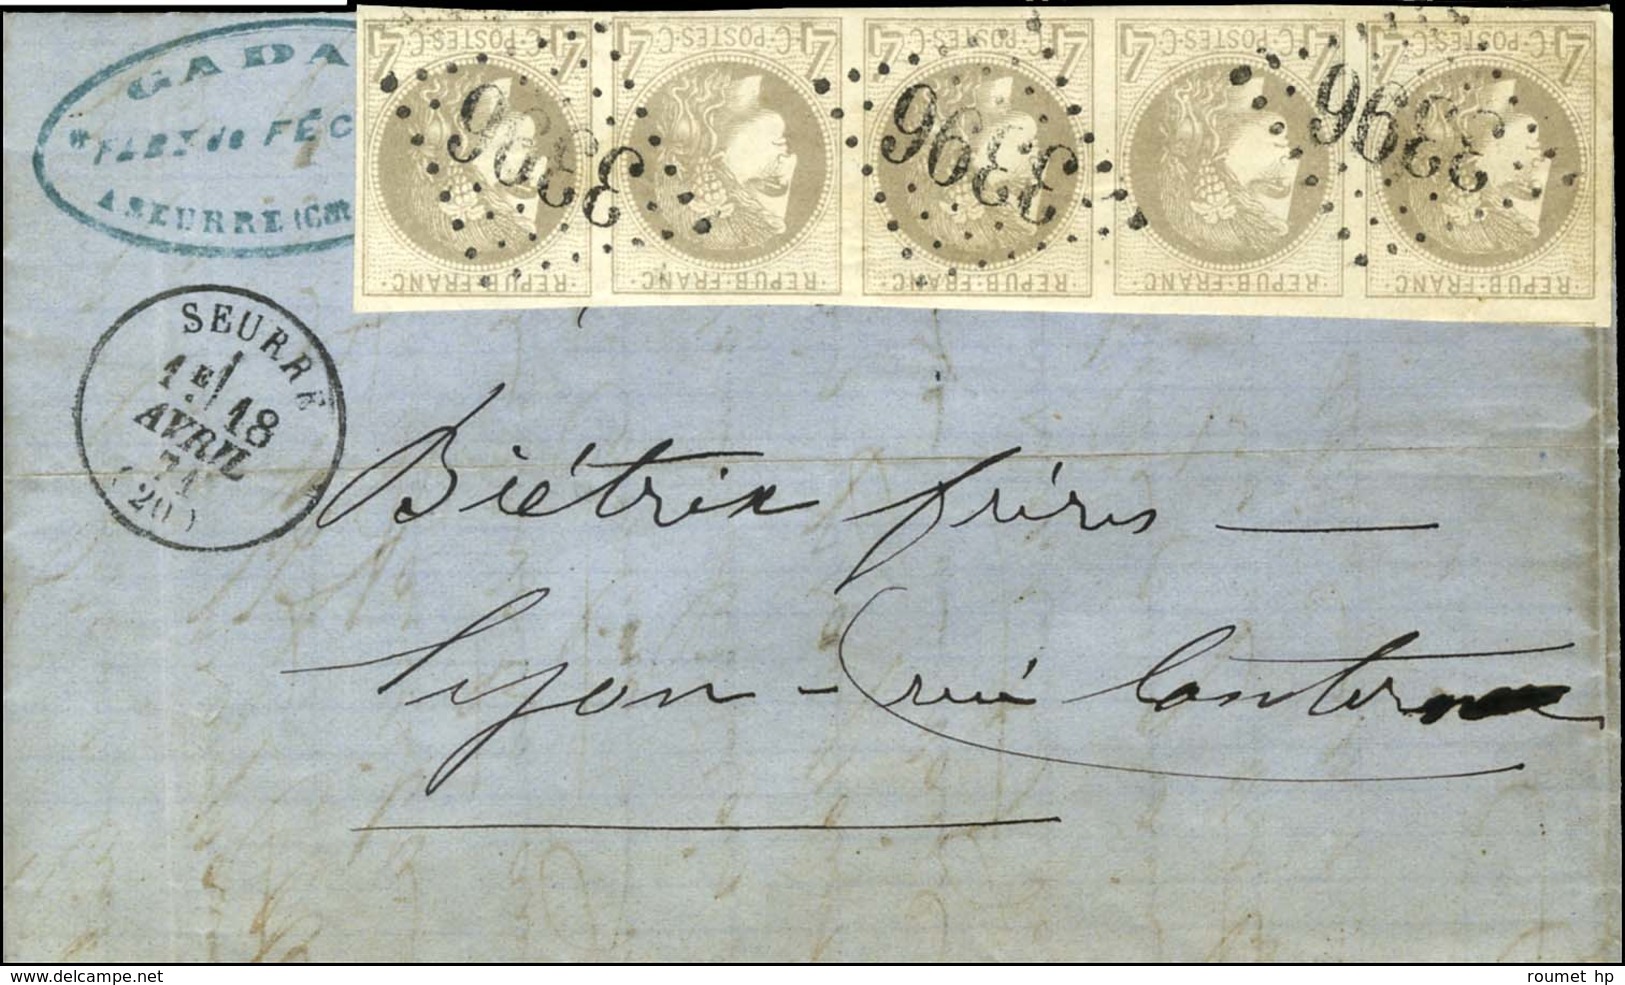 GADA
FABT de FÉC
A SEURRE (Côt
4 C·POSTES·C 4
4 C·POSTES·C 4
4 C·POSTES·C 4
4 C·POSTES·C 4
4 C·POSTES·C 4
3396
3396
3396
·REPUB·FRANC·
·REPUB·FRANC·
·REPUB·FRANC·
·REPUB·FRANC·
·REPUB·FRANC·
SEURRE
1E/ 18
AVRIL
71
(20)
Biétrix frères
Lyon - rue Lanterne
www.delcampe.net
roumet hp